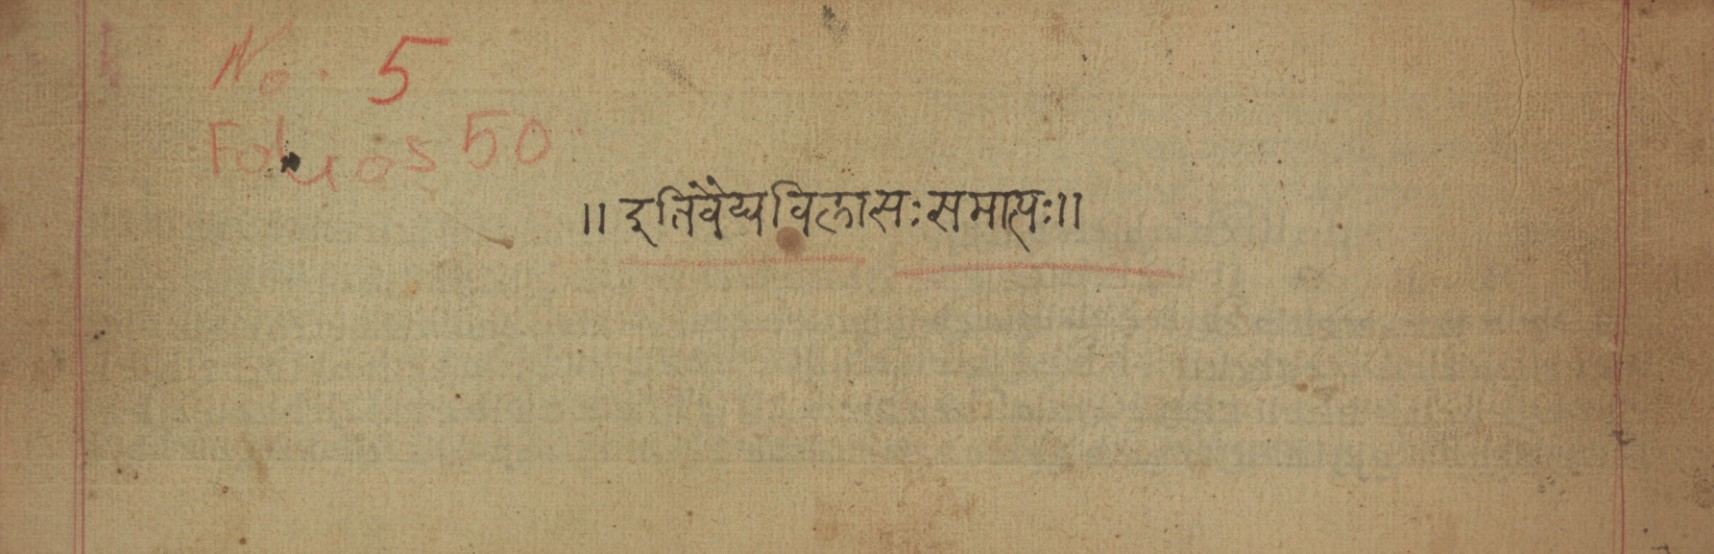 No. 5
Folios 50
॥ इतिवैद्यविलासः समाप्तः॥